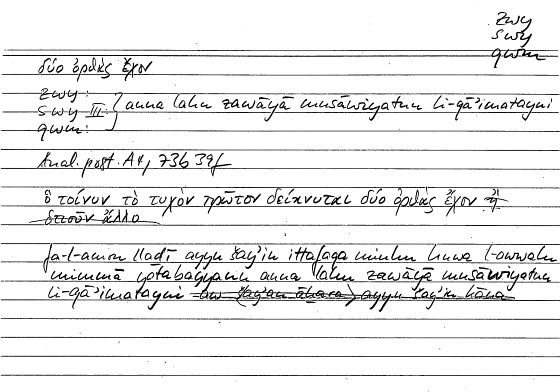 zwy
swy
qwm
δύο ὀρθὰς ἔχον
zwy:
swy III: } anna lahu zawāyā musāwiyatun li-qā'imatayni
qwm:
Anal. post. A4, 73b 39f
ὃ τοίνυν τὸ τυχὸν πρῶτον δείκνυται δύο ὀρθὰς ἔχον ἢ
ὁτιοῦν ἄλλο
fa-l-amru lladī ayyu šay'in ittafaqa minhu huwa l-awwalu
mimmā yatabayyanu anna lahu zawāyā musāwiyatun
li-qā'imatayni aw (šay'an āḫara) ayyu šay'in kāna